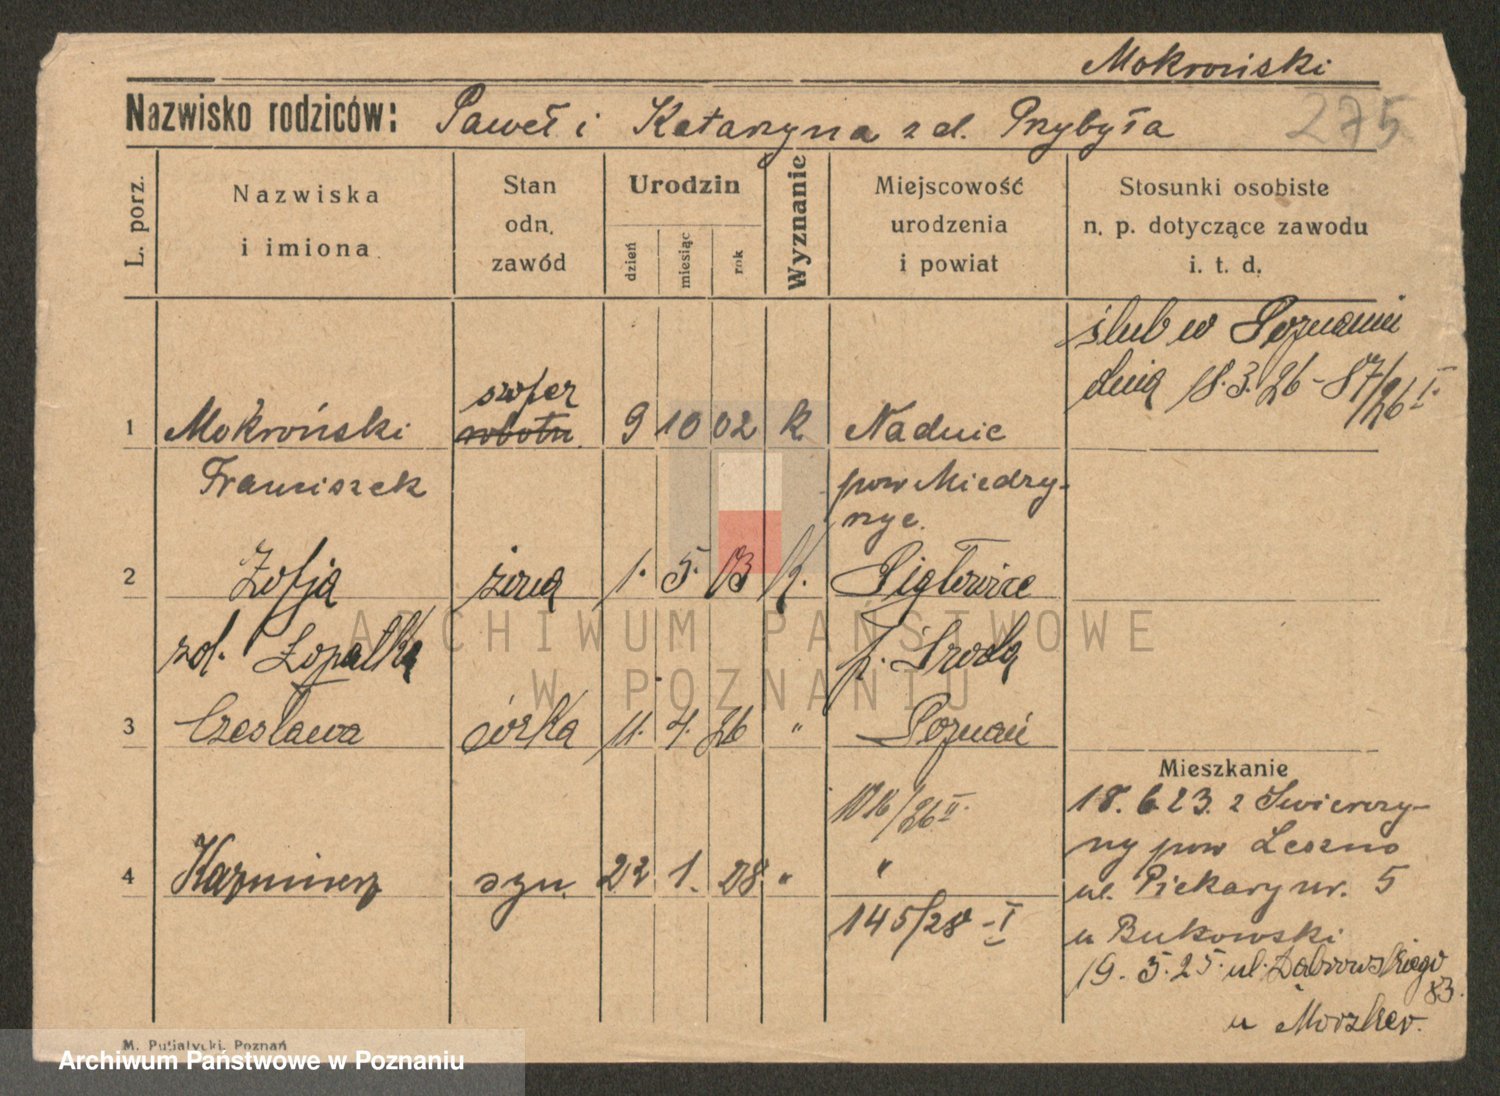 Mokroński
Nazwisko rodziców: Paweł i Katarzyna z d. Przybyła
275
L. porz.
Nazwiska
i imiona
Stan
odn.
zawód
Urodzin
dzień
miesiąc
rok
Wyznanie
Miejscowość
urodzenia
i powiat
Stosunki osobiste
n. p. dotyczące zawodu
i. t. d.
ślub w Poznaniu
dnia 18.3.26 - 87/26 I.
szofer
1 Mokroński robotn. 9 10 02 k Nadnie
Franciszek pow Miedzy-
rzyc.
2 Zofja żona 1. 5. 03 k. Piglowice
zd. Łopatka p. Środa
3 Czesława córka 11. 4. 26 " Poznań
1016/26 II.
4 Kazimierz syn 22 1. 28 " "
145/28 - I
Mieszkanie
18. 6 23. z Swierczy-
ny pow Leszno
ul. Piekary nr. 5
u Bukowski
19. 5. 25. ul. Dąbrowskiego
83.
u
M. Putiatycki, Poznań
ARCHIWUM PAŃSTWOWE
W POZNANIU
Archiwum Państwowe w Poznaniu